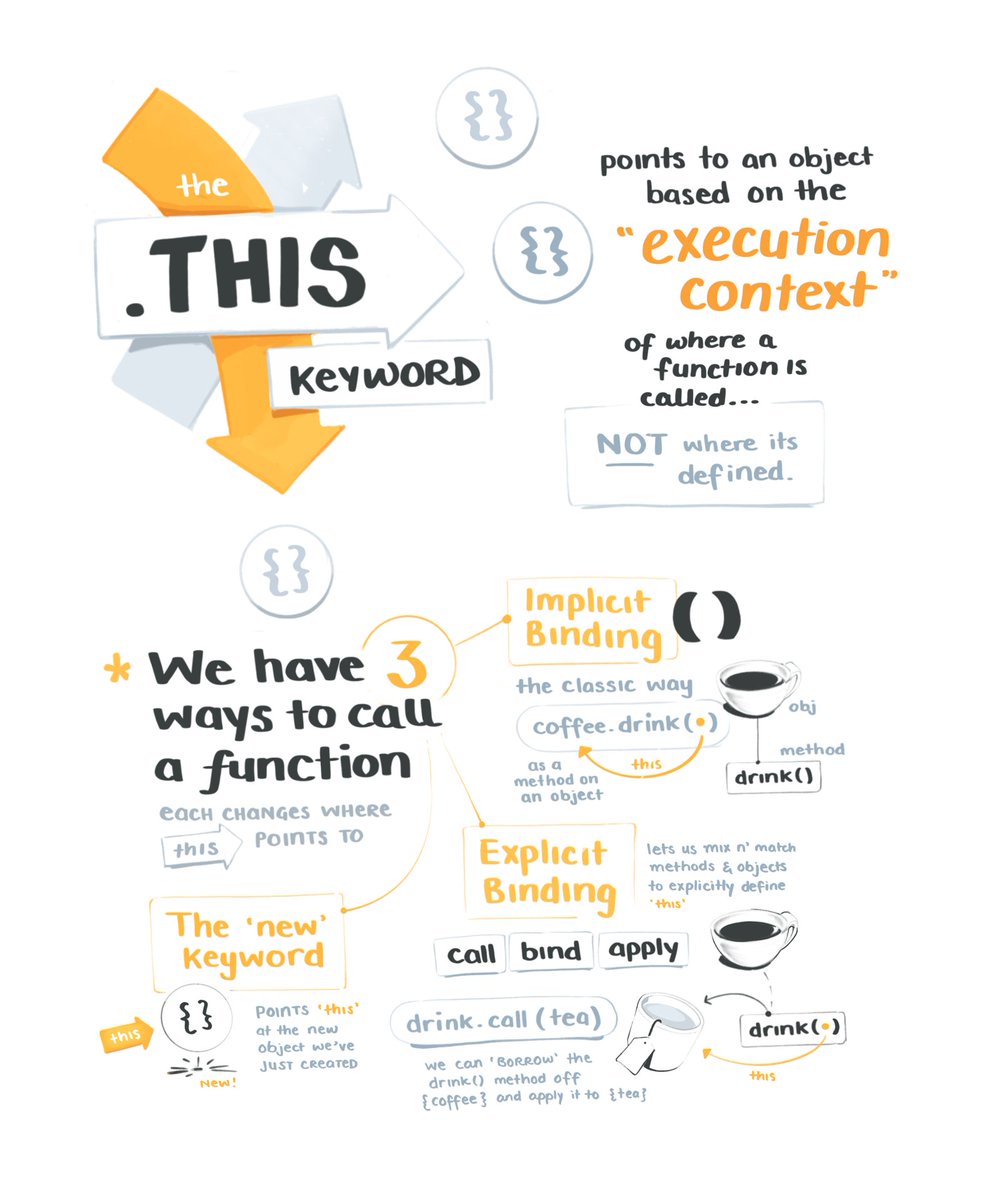 the
.THIS
KEYWORD
{}
{}
points to an object
based on the
"execution
context"
of where a
function is
called...
NOT where its
defined.
{}
* We have 3
ways to call
a function
each changes where
this points to
Implicit
Binding
()
the classic way
coffee.drink(•)
this
as a
method on
an object
obj
method
drink()
Explicit
Binding
lets us mix n' match
methods & objects
to explicitly define
'this'
call bind apply
drink.call (tea)
we can 'BORROW' the
drink() method off
{coffee} and apply it to {tea}
drink(•)
this
The 'new'
Keyword
this
{}
NEW!
POINTS 'this'
at the new
object we've
JUST CREATED